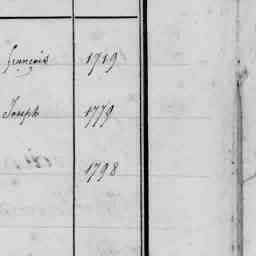 françois 1719
Joseph 1779
1798